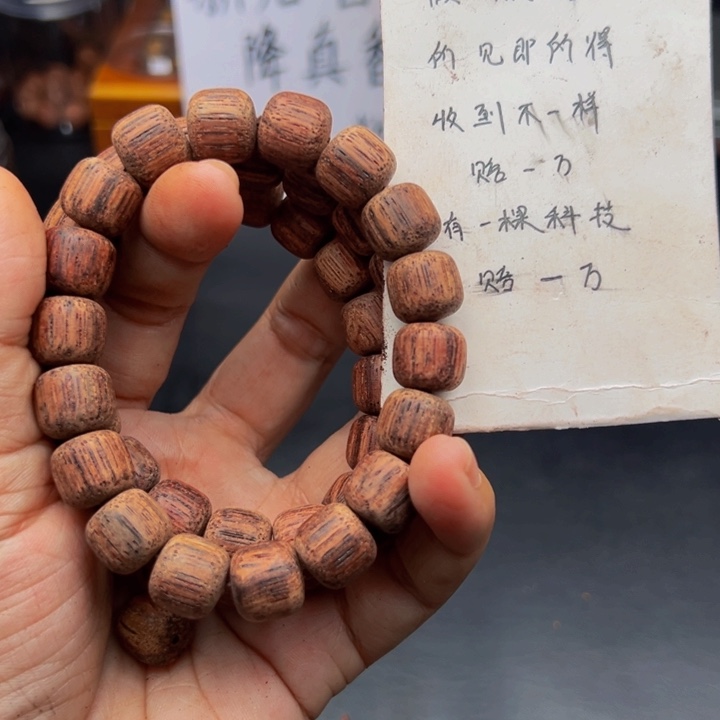 降真香
的见即的得
收到不一样
赔一万
有一棵科技
赔一万